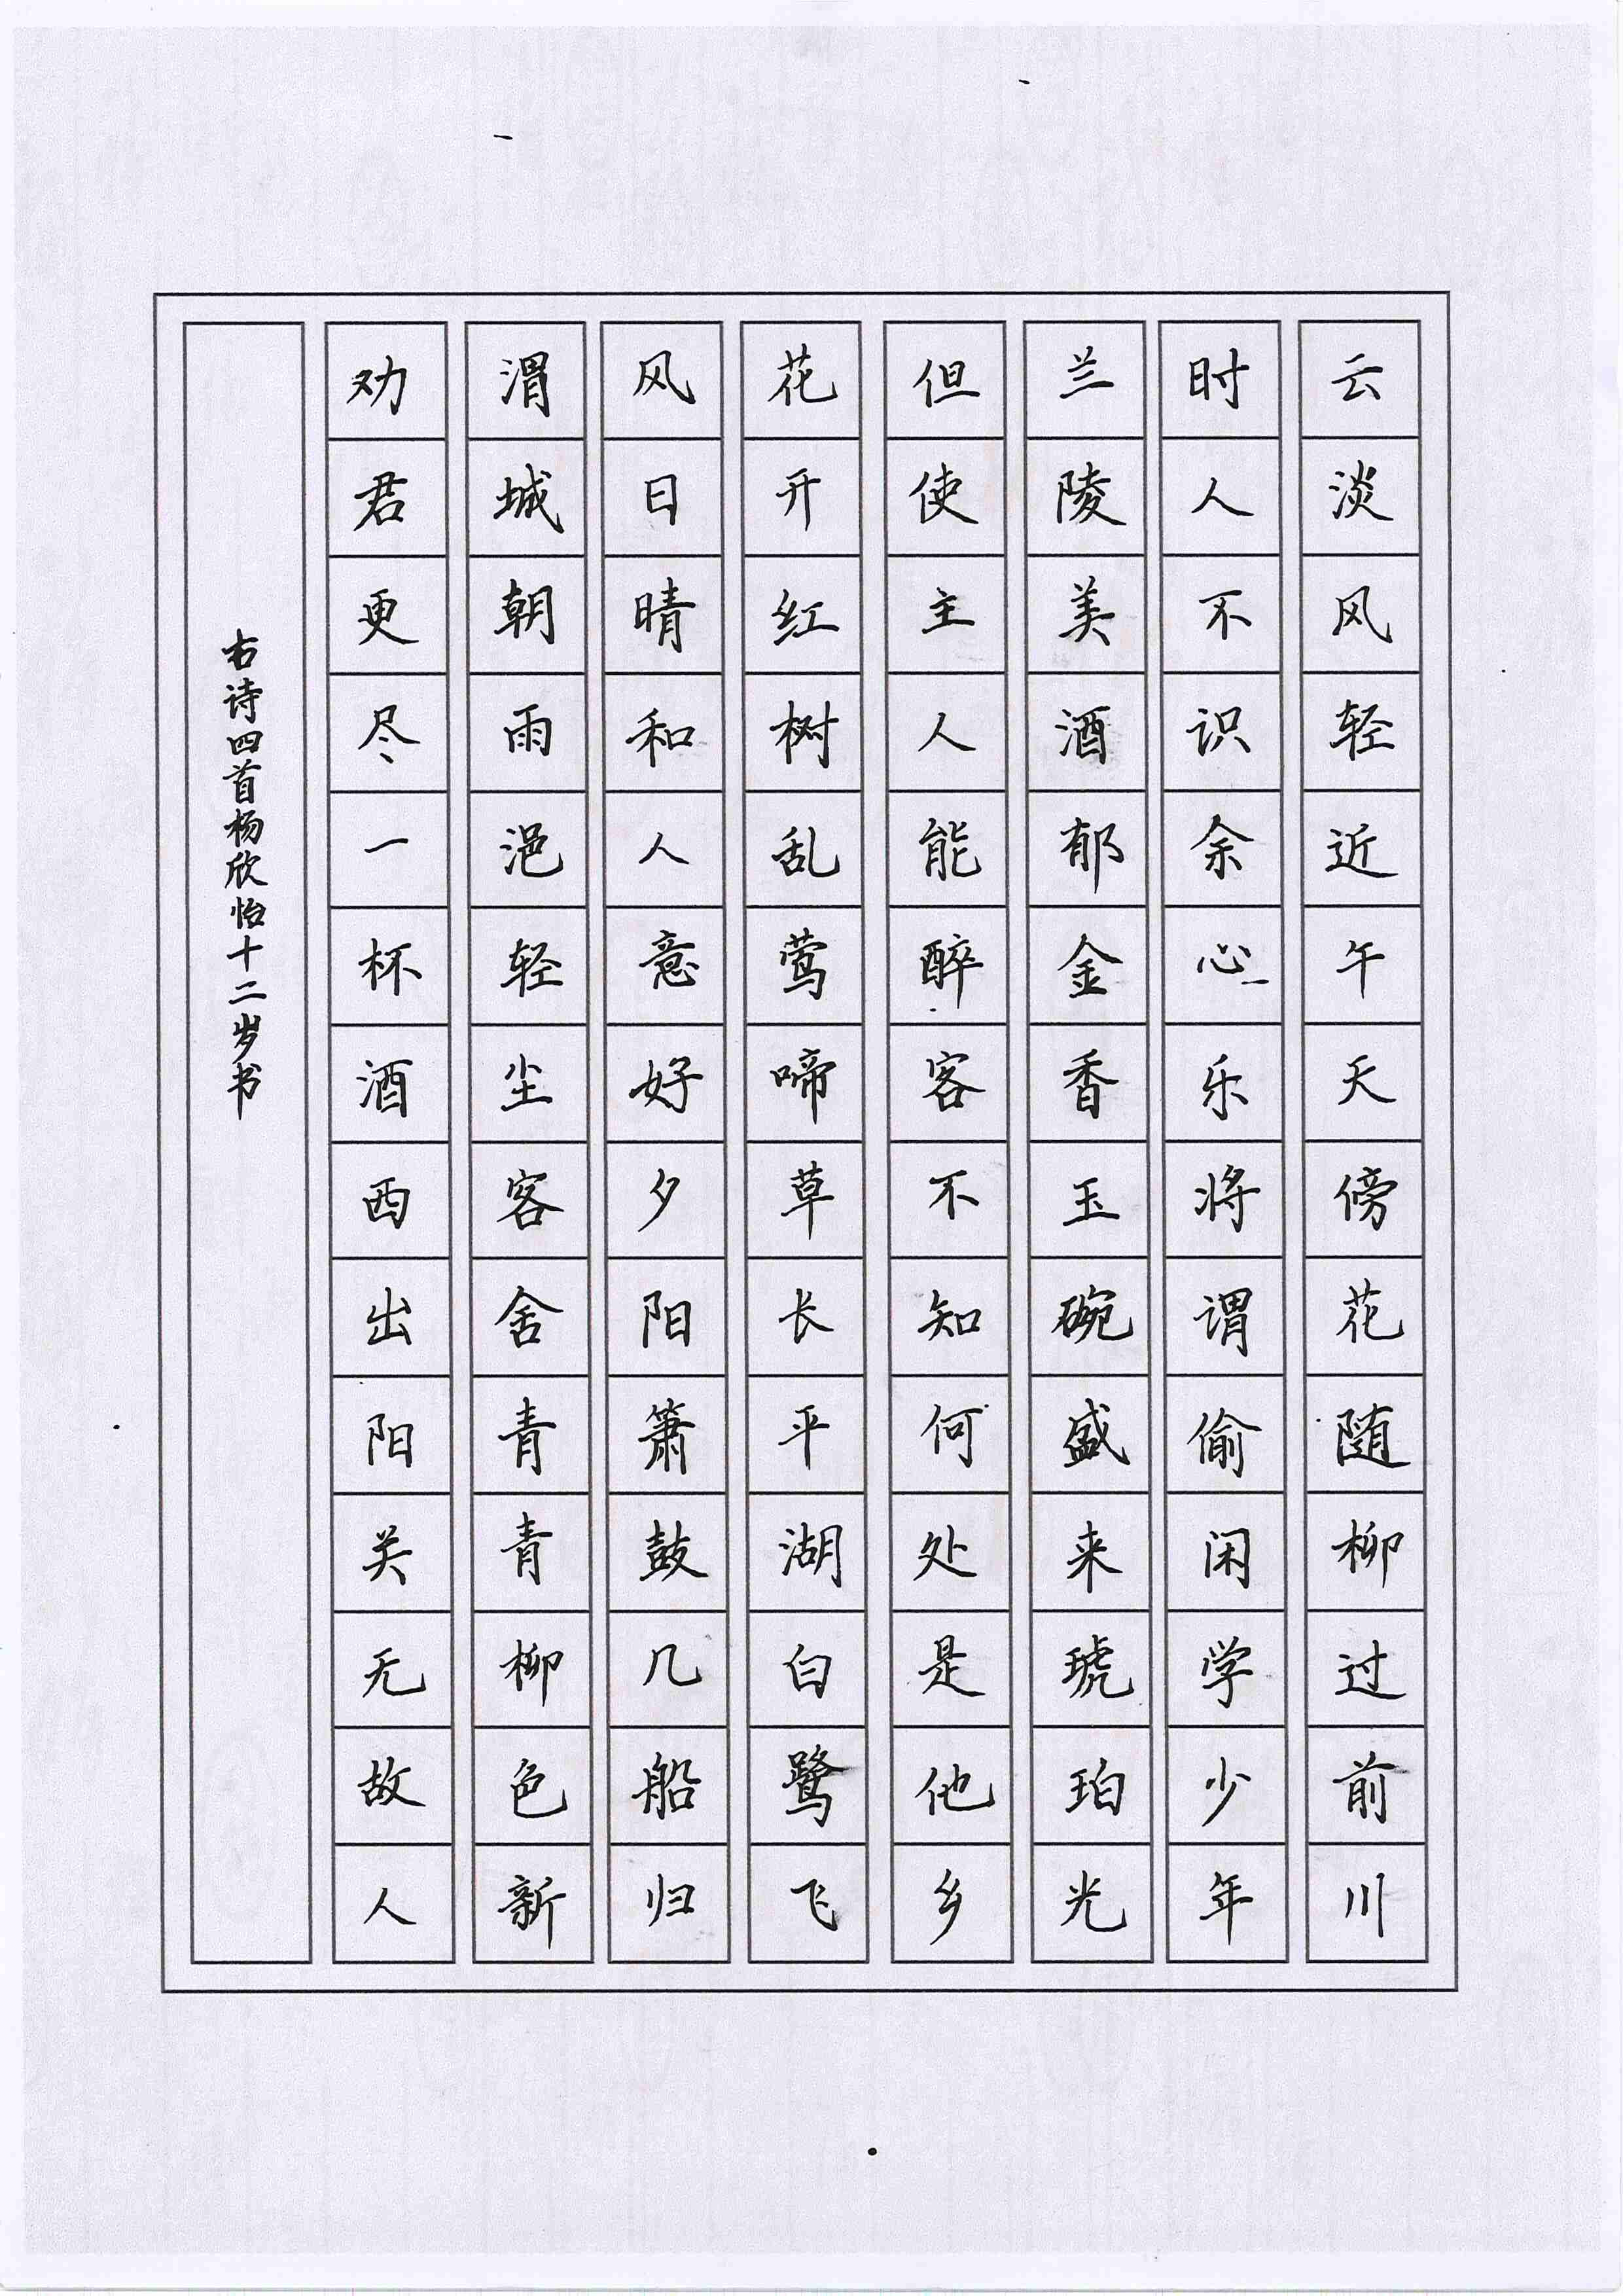 云淡风轻近午天傍花随柳过前川
时人不识余心乐将谓偷闲学少年
兰陵美酒郁金香玉碗盛来琥珀光
但使主人能醉客不知何处是他乡
花开红树乱莺啼草长平湖白鹭飞
风日晴和人意好夕阳箫鼓几船归
渭城朝雨浥轻尘客舍青青柳色新
劝君更尽一杯酒西出阳关无故人
右诗四首杨欣怡十二岁书